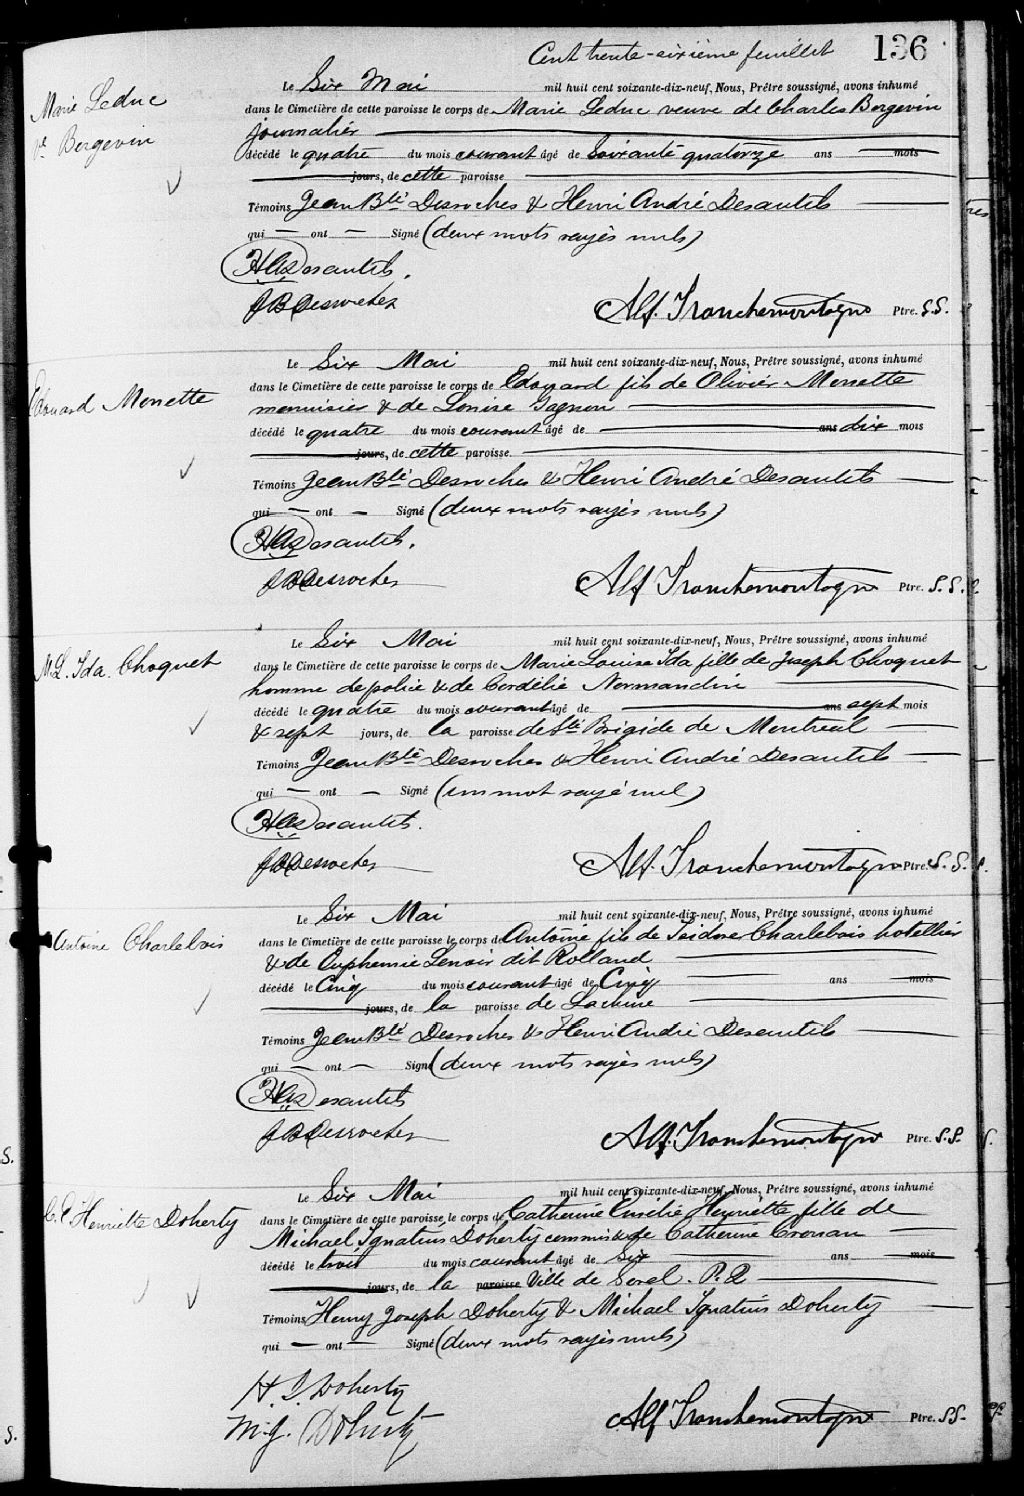 Cent trente-sixième feuillet 136
Marie Leduc
ve Bergevin
Le Six Mai mil huit cent soixante-dix-neuf, Nous, Prêtre soussigné, avons inhumé
dans le Cimetière de cette paroisse le corps de Marie Leduc veuve de Charles Bergevin
journalier
décédé le quatre du mois courant âgé de Soixante quatorze ans mois
jours, de cette paroisse
Témoins Jean Bte Desroches & Henri André Desautels
qui — ont — Signé (deux mots rayés nuls)
HADesautels.
JBDesroches
Alf. Tranchemontagne Ptre. S.S.
Edouard Monette
Le Six Mai mil huit cent soixante-dix-neuf, Nous, Prêtre soussigné, avons inhumé
dans le Cimetière de cette paroisse le corps de Edouard fils de Olivier Monette
menuisier & de Louise Gagnon
décédé le quatre du mois courant âgé de ans dix mois
jours, de cette paroisse.
Témoins Jean Bte Desroches & Henri André Desautels
qui — ont — Signé (deux mots rayés nuls)
HADesautels.
JBDesroches
Alf Tranchemontagne Ptre. S.S.
M.L. Ida Choquet
Le Six Mai mil huit cent soixante-dix-neuf, Nous, Prêtre soussigné, avons inhumé
dans le Cimetière de cette paroisse le corps de Marie Louise Ida fille de Joseph Choquet
homme de police & de Cordélie Normandin
décédé le quatre du mois courant âgé de ans sept mois
& sept jours, de la paroisse de Ste Brigide de Montreal
Témoins Jean Bte Desroches & Henri André Desautels
qui — ont — Signé (un mot rayé nul)
HADesautels.
JBDesroches
Alf. Tranchemontagne Ptre. S.S.
Antoine Charlebois
Le Six Mai mil huit cent soixante-dix-neuf, Nous, Prêtre soussigné, avons inhumé
dans le Cimetière de cette paroisse le corps de Antoine fils de Isidore Charlebois hotellier
& de Euphemie Lenoir dit Rolland
décédé le Cinq du mois courant âgé de Cinq ans mois
jours, de la paroisse de Lachine
Témoins Jean Bte Desroches & Henri André Desautels
qui — ont — Signé (deux mots rayés nuls)
HADesautels
JBDesroches
Alf. Tranchemontagne Ptre. S.S.
C.E. Henriette Doherty
Le Six Mai mil huit cent soixante-dix-neuf, Nous, Prêtre soussigné, avons inhumé
dans le Cimetière de cette paroisse le corps de Catherine Emélie Henriette fille de
Michael Ignatius Doherty commis & de Catherine Cronan
décédé le trois du mois courant âgé de Six ans mois
jours, de la paroisse Ville de Sorel. P.Q
Témoins Henry Joseph Doherty & Michael Ignatius Doherty
qui — ont — Signé (deux mots rayés nuls)
H. J. Doherty
M.J. Doherty
Alf Tranchemontagne Ptre. S.S.